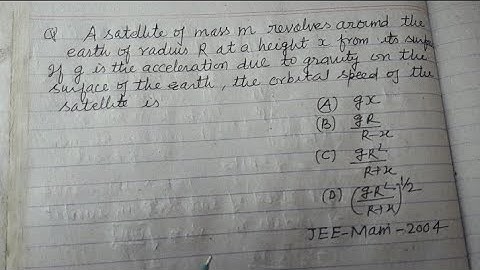 Q A satellite of mass m revolves around the
earth of radius R at a height x from its surface
If g is the acceleration due to gravity on the
surface of the earth, the orbital speed of the
satellite is
(A) gx
(B) gR/R-x
(C) gR²/R+x
(D) (gR²/R+x)^1/2
JEE-Main-2004